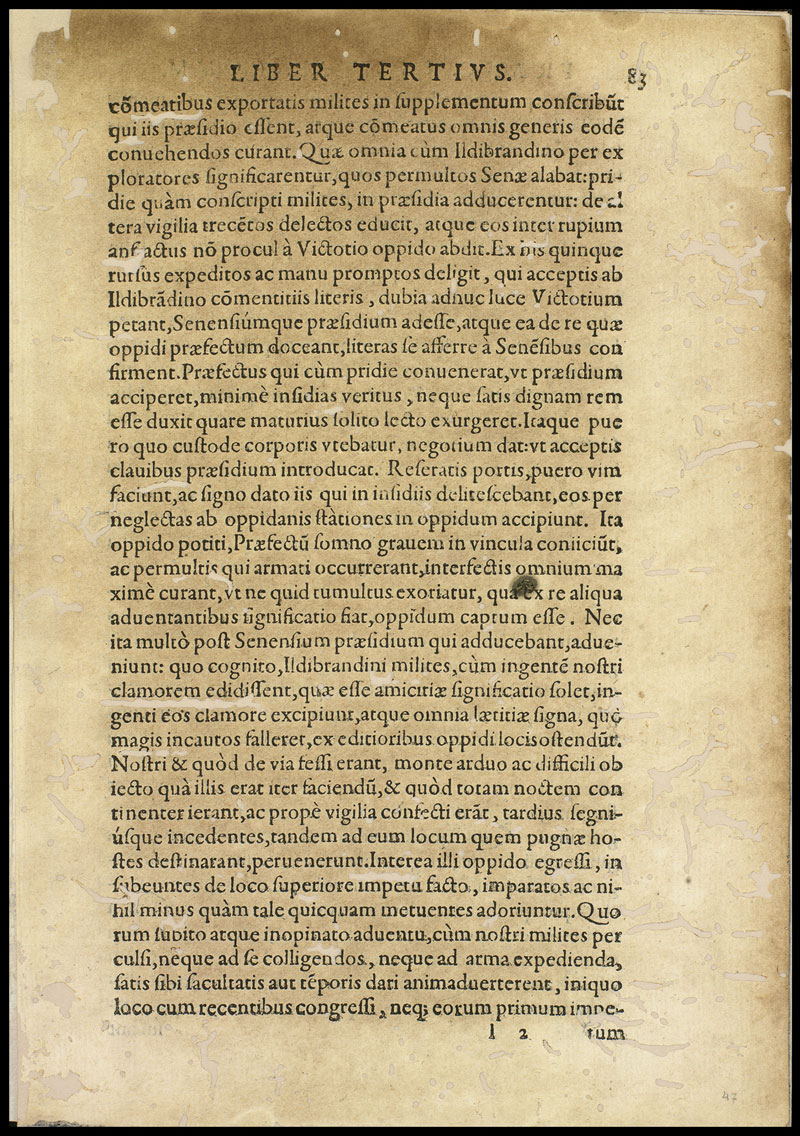 LIBER TERTIVS. 83
cõmeatibus exportatis milites in ſupplementum conſcribũt
qui iis præſidio eſſent, atque cõmeatus omnis generis eodẽ
conuehendos curant. Quæ omnia cùm Ildibrandino per ex
ploratores ſignificarentur, quos permultos Senæ alabat: pri-
die quàm conſcripti milites, in præſidia adducerentur: de al
tera vigilia trecẽtos delectos educit, atque eos inter rupium
anfractus nõ procul à Victotio oppido abdit. Ex his quinque
rurſus expeditos ac manu promptos deligit, qui acceptis ab
Ildibrãdino cõmentitiis literis, dubia adhuc luce Victotium
petant, Senenſiúmque præſidium adeſſe, atque ea de re quæ
oppidi præfectum doceant, literas ſe afferre à Senẽſibus con
firment. Præfectus qui cùm pridie conuenerat, vt præſidium
acciperet, minimè inſidias veritus, neque ſatis dignam rem
eſſe duxit quare maturius ſolito lecto exurgeret. Itaque pue
ro quo cuſtode corporis vtebatur, negotium dat: vt acceptis
clauibus præſidium introducat. Reſeratis portis, puero vim
faciunt, ac ſigno dato iis qui in inſidiis deliteſcebant, eos per
neglectas ab oppidanis ſtàtiones in oppidum accipiunt. Ita
oppido potiti, Præfectũ ſomno grauem in vincula coniiciũt,
ac permultis qui armati occurrerant, interfectis omnium ma
ximè curant, vt ne quid tumultus exoriatur, qua ex re aliqua
aduentantibus ſignificatio fiat, oppidum captum eſſe. Nec
ita multò poſt Senenſium præſidium qui adducebant, adue-
niunt: quo cognito, Ildibrandini milites, cùm ingentẽ noſtri
clamorem edidiſſent, quæ eſſe amicitiæ ſignificatio ſolet, in-
genti eos clamore excipiunt, atque omnia lætitiæ ſigna, quò
magis incautos falleret, ex editioribus oppidi locis oſtendũt.
Noſtri & quòd de via feſſi erant, monte arduo ac difficili ob
iecto quà illis erat iter faciendũ, & quòd totam noctem con
tinenter ierant, ac propè vigilia confecti erãt, tardius ſegni-
úſque incedentes, tandem ad eum locum quem pugnæ ho-
ſtes deſtinarant, peruenerunt. Interea illi oppido egreſſi, in
ſubeuntes de loco ſuperiore impetu facto, imparatos ac ni-
hil minus quàm tale quicquam metuentes adoriuntur. Quo
rum ſubito atque inopinato aduentu, cùm noſtri milites per
culſi, neque ad ſe colligendos, neque ad arma expedienda,
ſatis ſibi facultatis aut tẽporis dari animaduerterent, iniquo
loco cum recentibus congreſſi, neq; eorum primum impe-
l 2 tum
47